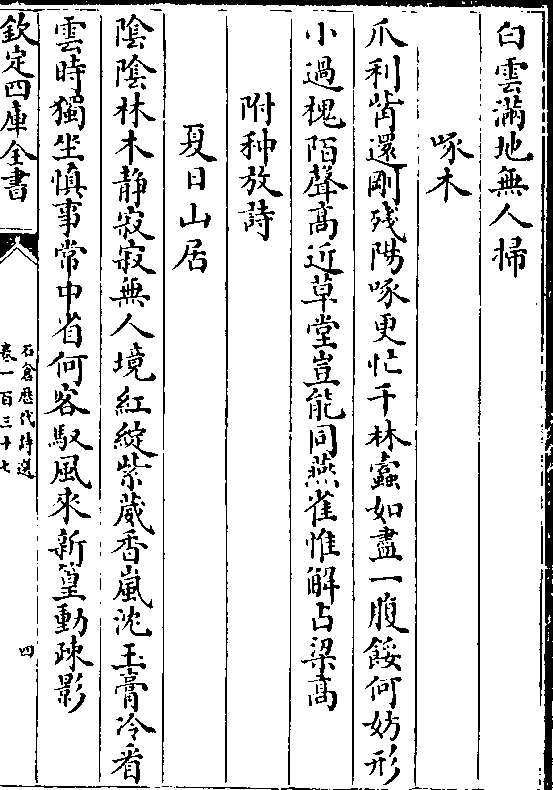 白雲滿地無人掃
啄木
爪利觜還剛殘陽啄更忙千林蠧如盡一腹餒何妨形
小過槐陌聲高近草堂豈能同燕雀惟解占梁高
附种放詩
夏日山居
陰陰林木静寂寂無人境紅綻紫葳香嵐沈玉膏冷看
雲時獨坐慎事常中省何客馭風來新篁動疎影
欽定四庫全書
石倉歴代詩選
卷一百三十七
四